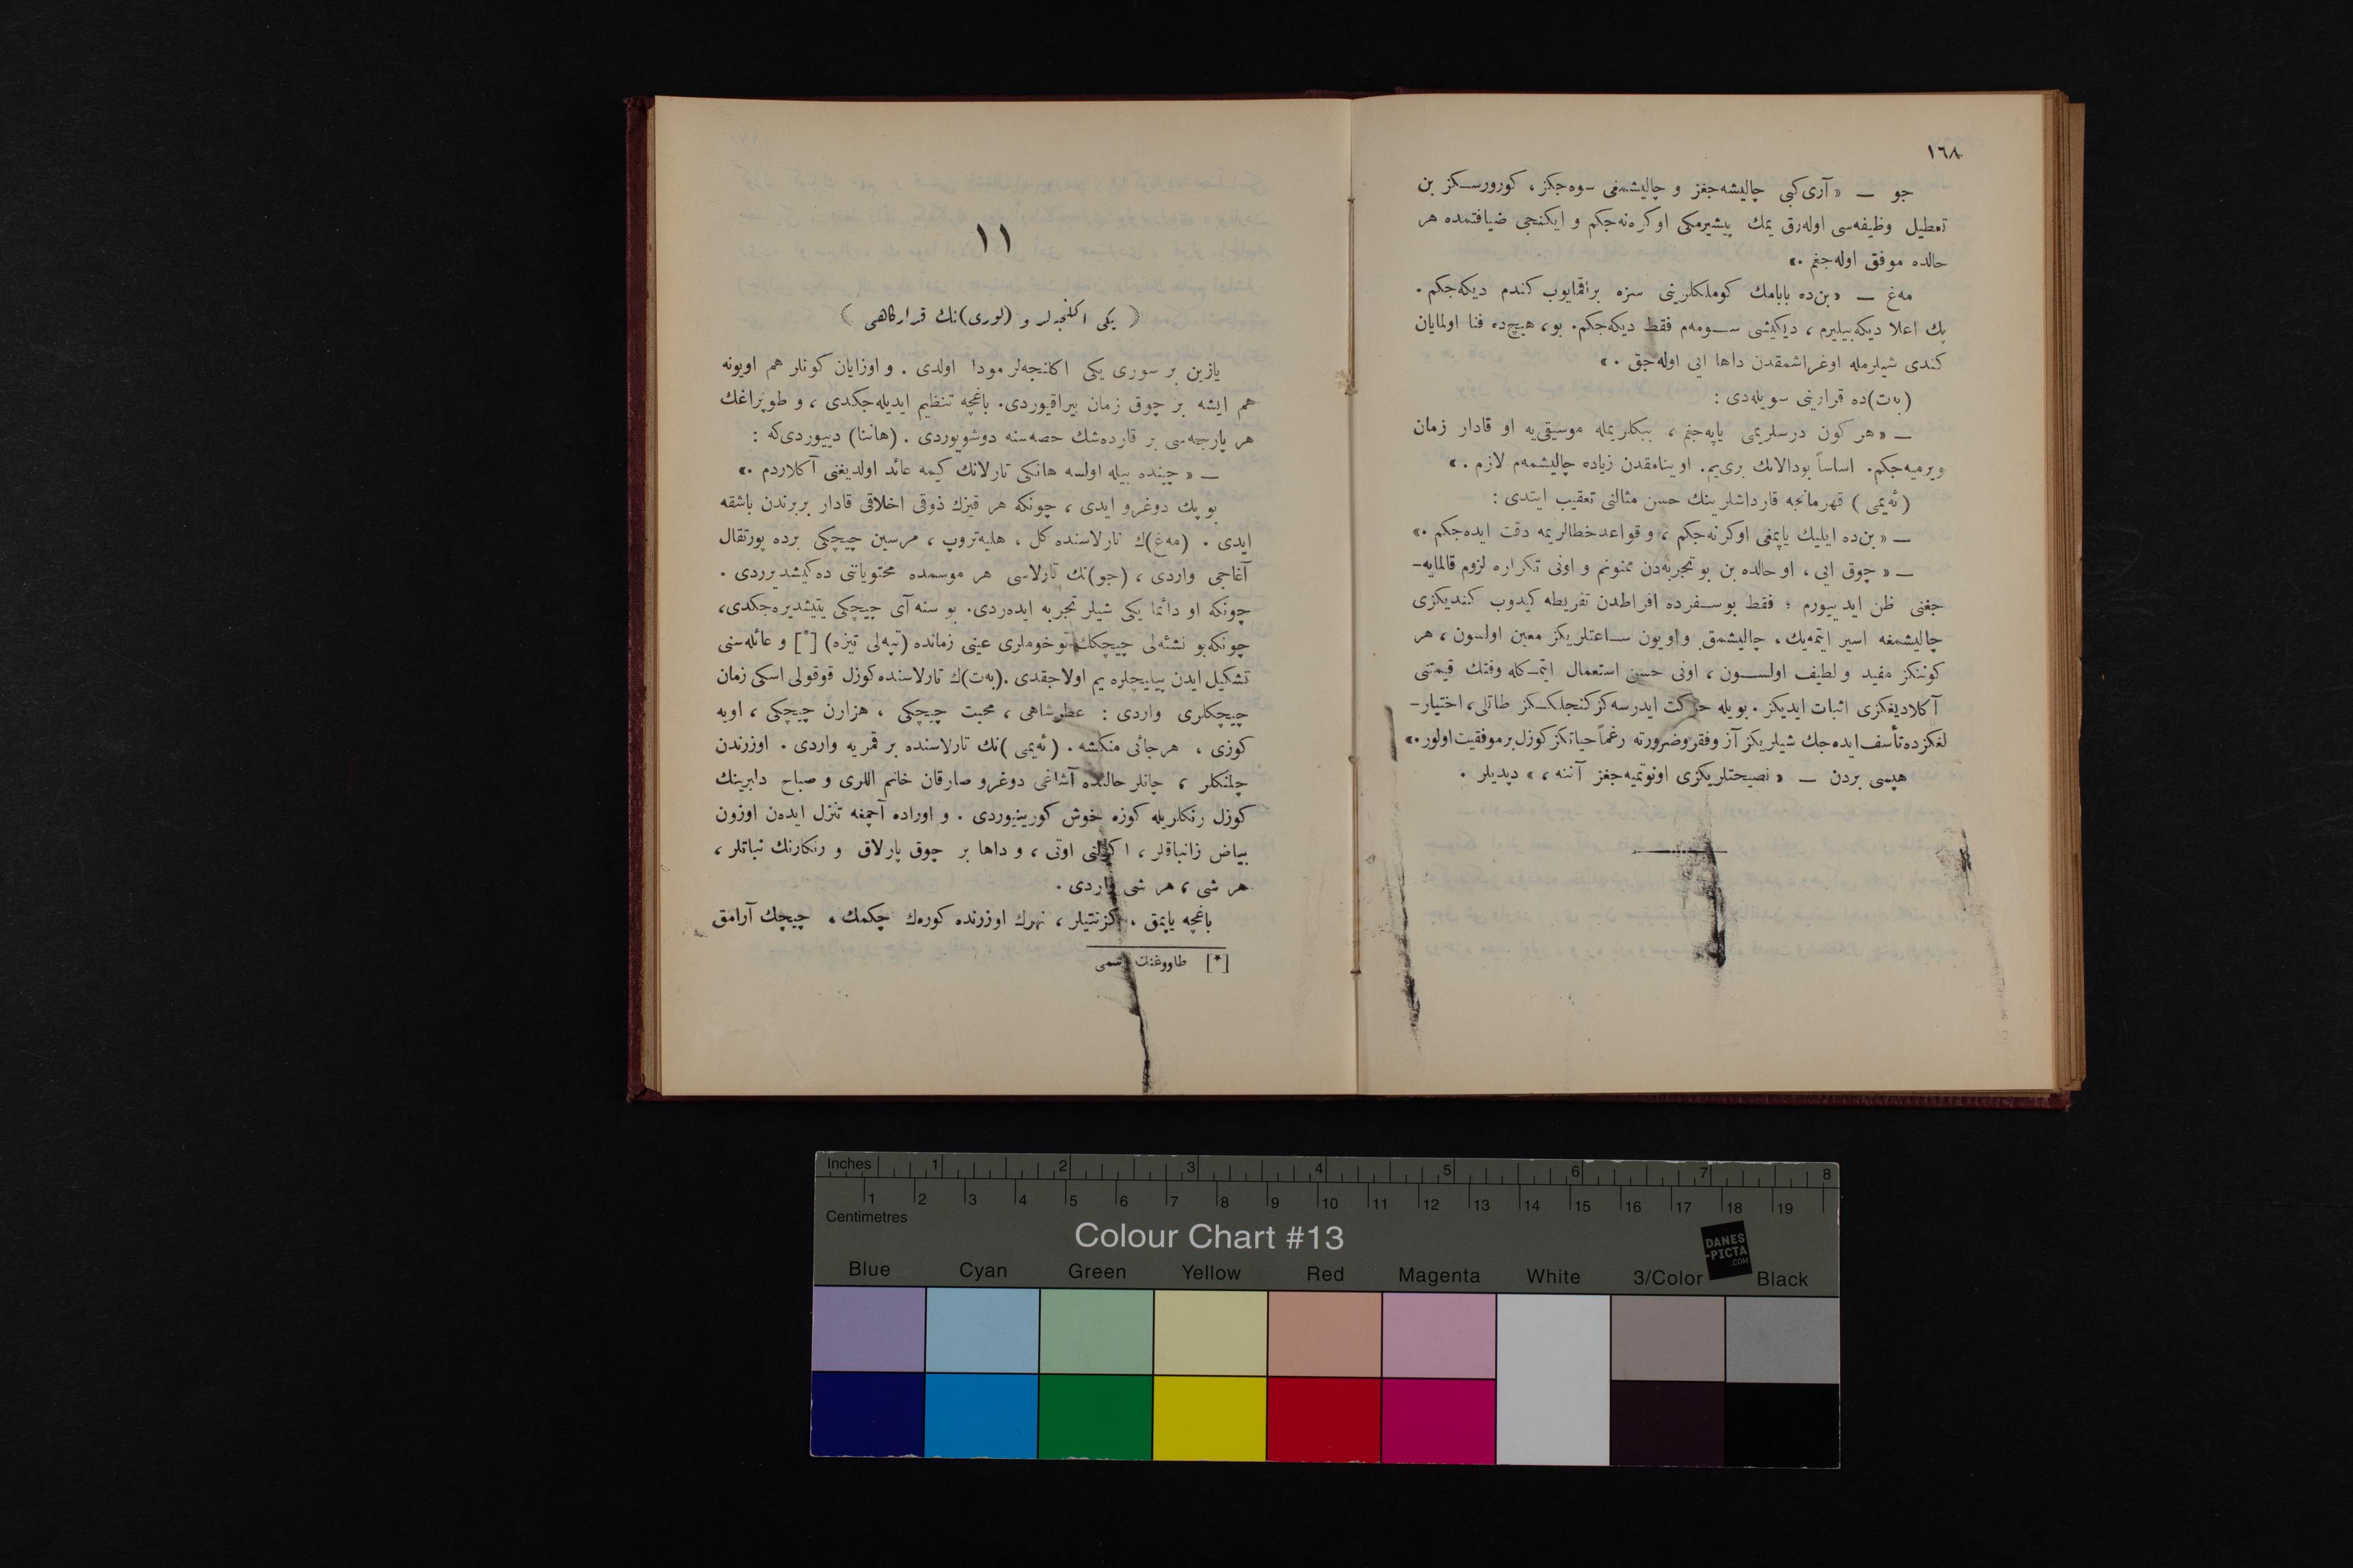 ١٦٨
جو — « آری کبی چالیشه‌جغز و چالیشمغی سوه‌جکز، کورورسکز بن
تعطیل وظیفه‌سی اوله‌رق یمك پیشیرمکی اوکره‌نه‌جکم و ایکنجی ضیافتمده هر
حالده موفق اوله‌جغم .»
مه‌غ — « بن‌ده بابامك کوملکلرینی سزه براقمایوب کندم دیکه‌جکم .
پك اعلا دیکه‌بیلیرم ، دیکیشی سومه‌م فقط دیکه‌جکم. بو، هیچ‌ده فنا اولمایان
کندی شیلرمله اوغراشمقدن داها ایی اوله‌جق .»
(به‌ت)ده قرارینی سویله‌دی :
— « هر کون درسلریمی یاپه‌جغم ، ببکلریمله موسیقی‌یه او قادار زمان
ویرمیه‌جکم. اساساً بودالانك بری‌یم. اوینامقدن زیاده چالیشمه‌م لازم .»
(ئه‌یمی) قهرمانجه قارداشلرینك حسن مثالنی تعقیب ایتدی :
— « بن‌ده ایلیك یاپمغی اوکرنه‌جکم ، و قواعد خطالریمه دقت ایده‌جکم .»
— « چوق ایی ، او حالده بن بو تجربه‌دن ممنونم و اونی تکراره لزوم قالمایه-
جغنی ظن ایدییورم ؛ فقط بو سفرده افراطدن تفریطه کیدوب کندیکزی
چالیشمغه اسیر ایتمه‌یك ، چالیشمق و اویون ساعتلریکز معین اولسون ، هر
کوننکز مفید و لطیف اولسون ، اونی حسن استعمال ایتمکله وقتك قیمتنی
آکلادیغکزی اثبات ایدیکز . بویله حرکت ایدرسه‌کز کنجلککز طاتلی، اختیار-
لغکزده تأسف ایده‌جك شیلریکز آز و فقر و ضرورته رغماً حیاتکز کوزل بر موفقیت اولور .»
هپسی بردن — « نصیحتلریکزی اونوتمیه‌جغز آننه ، » دیدیلر .
١١
(یکی اکلنجه‌لر و (لوری)نك قرارکاهی)
یازین بر سوری یکی اکلنجه‌لر مودا اولدی . و اوزایان کونلر هم اویونه
هم ایشه بر چوق زمان بیراقیوردی. باغچه تنظیم ایدیله‌جکدی ، و طوپراغك
هر پارچه‌سی بر قارده‌شك حصه‌سنه دوشویوردی . (هاننا) دییوردی‌که :
— « چینده بیله اولسه هانکی تارلانك کیمه عائد اولدیغنی آکلاردم .»
بو پك دوغرو ایدی ، چونکه هر قیزك ذوقی اخلاقی قادار بربرندن باشقه
ایدی . (مه‌غ)ك تارلاسنده کل ، هلیه‌تروپ ، مرسین چیچکی برده پورتقال
آغاجی واردی ، (جو)نك تارلاسی هر موسمده محتویاتنی ده کیشدیرردی .
چونکه او دائما یکی شیلر تجربه ایده‌ردی. بو سنه آی چیچکی یتیشدیره‌جکدی،
چونکه بو نشئه‌لی چیچکك توخوملری عینی زمانده (تپه‌لی تیزه) [*] و عائله‌سنی
تشکیل ایدن پیلیچلره یم اولاجقدی .(به‌ت)ك تارلاسنده کوزل قوقولی اسکی زمان
چیچکلری واردی : عطرشاهی ، محبت چیچکی ، هزارن چیچکی ، اویه
کوزی ، هرجائی منکشه . (ئه‌یمی)نك تارلاسنده بر قمریه واردی . اوزرندن
چلنکلر ، چانلر حالنده آشاغی دوغرو صارقان خانم اللری و صباح دلبرینك
کوزل رنکلریله کوزه خوش کورینیوردی . و اوراده آچمغه تنزل ایده‌ن اوزون
بیاض زانباقلر ، اکرلتی اوتی ، و داها بر چوق پارلاق و رنکارنك نباتلر ،
هر شی ، هر شی واردی .
باغچه یاپمق ، کزنتیلر ، نهرك اوزرنده کوره‌ك چکمك ، چیچك آرامق
[*] طاووغنك اسمی
Inches 1 2 3 4 5 6 7 8
1 2 3 4 5 6 7 8 9 10 11 12 13 14 15 16 17 18 19
Centimetres
Colour Chart #13
DANES
-PICTA
.COM
Blue Cyan Green Yellow Red Magenta White 3/Color Black